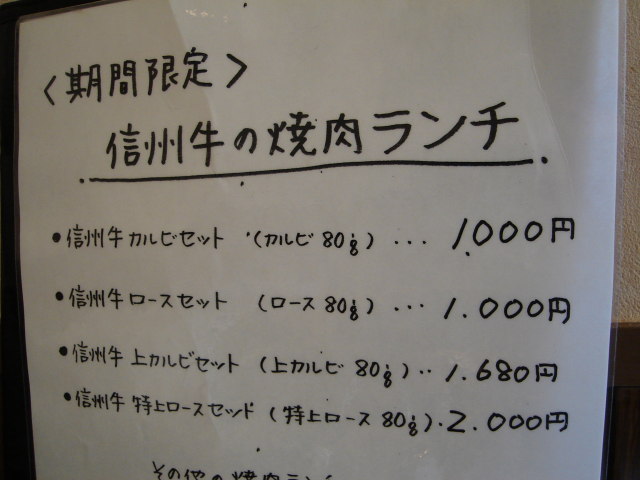 〈期間限定〉
信州牛の焼肉ランチ
•信州牛カルビセット (カルビ 80g) ... 1.000円
•信州牛ロースセット (ロース 80g) ... 1.000円
•信州牛 上カルビセット (上カルビ 80g) .. 1.680円
•信州牛 特上ロースセット (特上ロース 80g) . 2.000円
その他の焼肉ラン